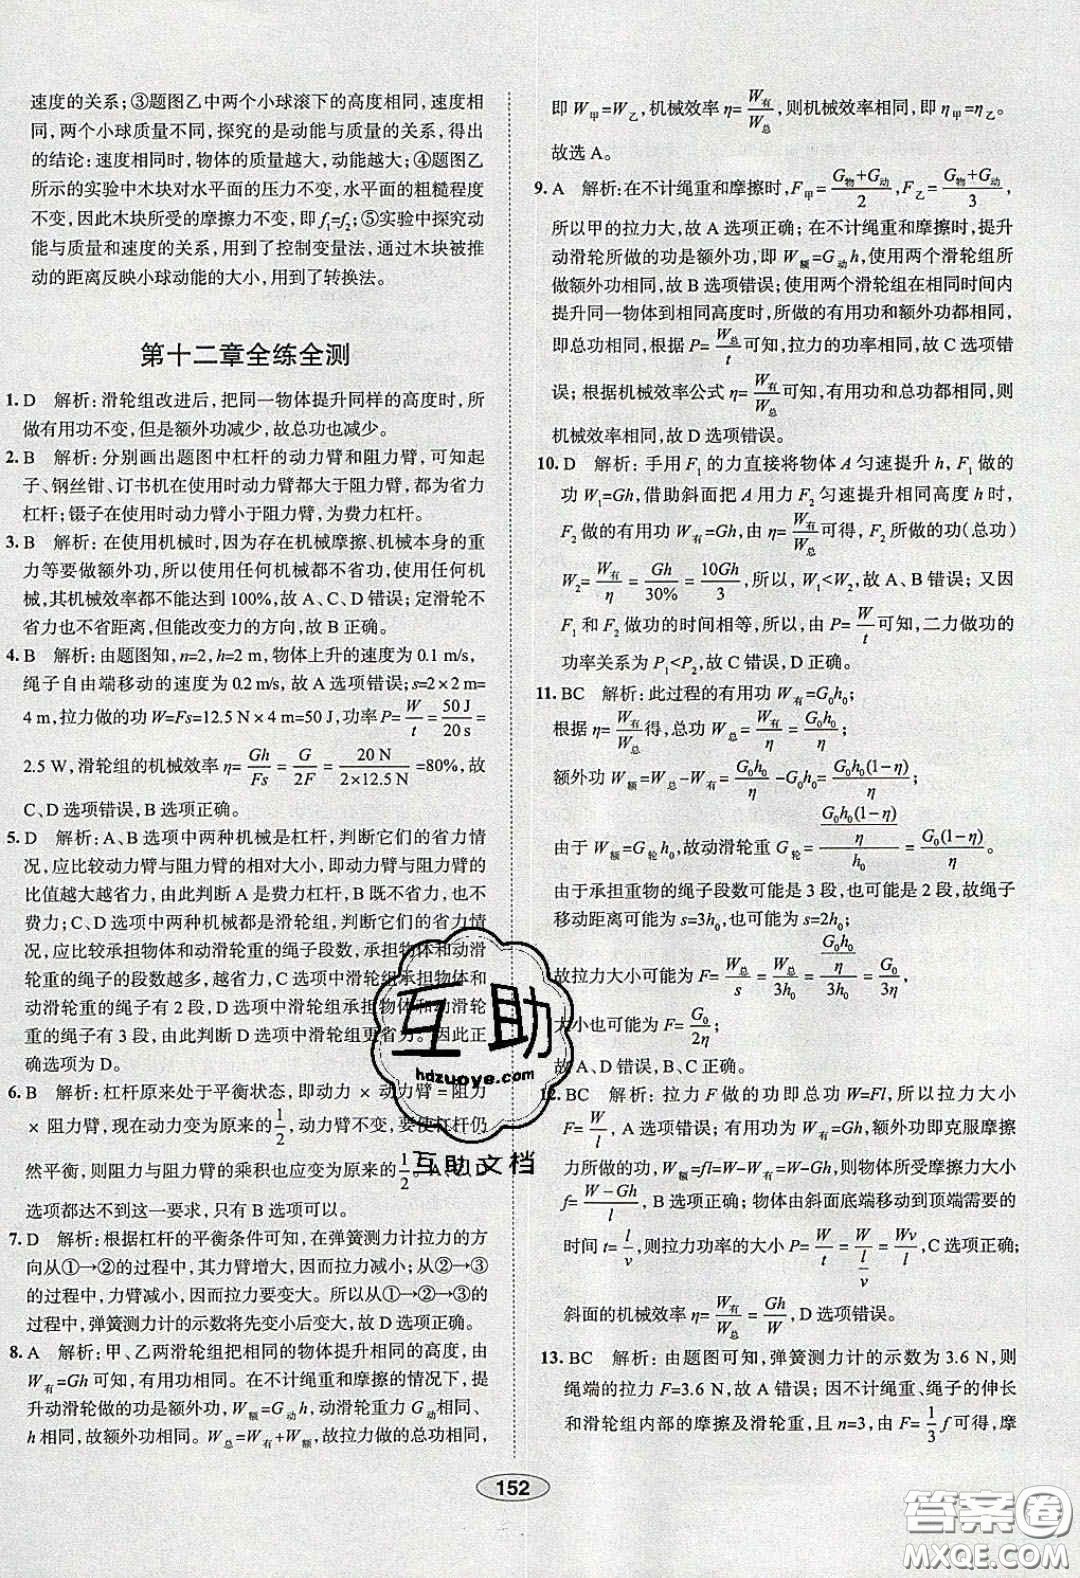 速度的关系;③题图乙中两个小球滚下的高度相同,速度相
同,两个小球质量不同,探究的是动能与质量的关系,得出
的结论:速度相同时,物体的质量越大,动能越大;④题图乙
所示的实验中木块对水平面的压力不变,水平面的粗糙程度
不变,因此木块所受的摩擦力不变,即 f₁=f₂;⑤实验中探究动
能与质量和速度的关系,用到了控制变量法,通过木块被推
动的距离反映小球动能的大小,用到了转换法。
第十二章全练全测
1. D 解析:滑轮组改进后,把同一物体提升同样的高度时,所
做有用功不变,但是额外功减少,故总功也减少。
2. B 解析:分别画出题图中杠杆的动力臂和阻力臂,可知起
子、钢丝钳、订书机在使用时动力臂都大于阻力臂,都为省力
杠杆;镊子在使用时动力臂小于阻力臂,为费力杠杆。
3. B 解析:在使用机械时,因为存在机械摩擦、机械本身的重
力等要做额外功,所以使用任何机械都不省功,使用任何机
械,其机械效率都不能达到100%,故 A、C、D 错误;定滑轮不
省力也不省距离,但能改变力的方向,故 B 选项正确。
4. B 解析:由题图知,n=2,h=2 m,物体上升的速度为0.1 m/s,
绳子自由端移动的速度为0.2 m/s,故 A 选项错误;s=2×2 m=
4 m,拉力做的功 W=Fs=12.5 N×4 m=50 J,功率 P=W/t=50 J/20 s=
2.5 W,滑轮组的机械效率 η=Gh/Fs=G/2F=20 N/(2×12.5 N)=80%,故
C、D 选项错误,B 选项正确。
5. D 解析:A、B 选项中两种机械是杠杆,判断它们的省力情
况,应比较动力臂与阻力臂的相对大小,即动力臂与阻力臂的
比值越大越省力,由此判断 A 是费力杠杆,B 既不省力,也不
费力;C、D 选项中两种机械都是滑轮组,判断它们的省力情
况,应比较承担物体和动滑轮重的绳子段数,承担物体和动滑
轮重的绳子的段数越多,越省力,C 选项中滑轮组承担物体和
动滑轮重的绳子有 2 段,D 选项中滑轮组承担物体和动滑轮
重的绳子有 3 段,由此判断 D 选项中滑轮组更省力。因此正
确选项为 D。
6. B 解析:杠杆原来处于平衡状态,即动力 × 动力臂=阻力
× 阻力臂,现在动力变为原来的1/2,动力臂不变,要使杠杆仍
然平衡,则阻力与阻力臂的乘积也应变为原来的1/2。A、C、D
选项都达不到这一要求,只有 B 选项可以。
7. D 解析:根据杠杆的平衡条件可知,在弹簧测力计拉力的方
向从①→②的过程中,其力臂增大,因而拉力减小;从②→③
的过程中,力臂减小,因而拉力要变大。所以从①→②→③的
过程中,弹簧测力计的示数将先变小后变大,故 D 正确。
8. A 解析:甲、乙两滑轮组把相同的物体提升相同的高度,由
W有=Gh 可知,有用功相同。在不计绳重和摩擦的情况下,提
升动滑轮做的功为额外功,W额=G动h,动滑轮重力 G动相同,
h 相同,故额外功相同。W总=W有+W额,故拉力做的总功相同,
即 W甲=W乙,机械效率 η=W有/W总,则机械效率相同,即 η甲=η乙。
故选 A。
9. A 解析:在不计绳重和摩擦时,F甲=(G物+G动)/2,F乙=(G物+G动)/3,
所以甲的拉力大,故 A 选项正确;在不计绳重和摩擦时,提升
动滑轮所做的功是额外功,即 W额=G动h,使用两个滑轮组所
做额外功相同,故 B 选项错误;使用两个滑轮组在相同时间内
提升同一物体到相同高度时,所做的有用功和额外功都相同,
即总功相同,根据 P=W总/t可知,拉力的功率相同,故 C 选项错
误;根据机械效率公式 η=W有/W总可知,有用功和总功都相同,则
机械效率相同,故 D 选项错误。
10. D 解析:手用 F₁ 的力直接将物体 A 匀速提升 h,F₁ 做的
功 W₁=Gh,借助斜面把 A 用力 F₂ 匀速提升相同高度 h 时,
F₂ 做的有用功 W有=Gh,由 η=W有/W总可得,F₂ 所做的功(总功)
W₂=W有/η=Gh/30%=10Gh/3,所以,W₁<W₂,故 A、B 错误;又因
F₁ 和 F₂ 做功的时间相等,所以,由 P=W/t可知,二力做功的
功率关系为 P₁<P₂,故 C 错误,D 正确。
11. BC 解析:此过程的有用功 W有=G₀h₀;
根据 η=W有/W总得,总功 W总=W有/η=G₀h₀/η;
额外功 W额=W总-W有=G₀h₀/η-G₀h₀=G₀h₀(1-η)/η;
由于 W额=G轮h₀,故动滑轮重 G轮=(G₀h₀(1-η)/η)/h₀=G₀(1-η)/η。
由于承担重物的绳子段数可能是 3 段,也可能是 2 段,故绳子
移动距离可能为 s=3h₀,也可能为 s=2h₀;
故拉力大小可能为 F=W总/s=W总/3h₀=(G₀h₀/η)/3h₀=G₀/3η,
大小也可能为 F=G₀/2η;
故 A、D 错误,B、C 正确。
12. BC 解析:拉力 F 做的功即总功 W=Fl,所以拉力大小
F=W/l,A 选项错误;有用功为 W有=Gh,额外功即克服摩擦
力所做的功,W额=fl=W-W有=W-Gh,则物体所受摩擦力大小
f=(W-Gh)/l,B 选项正确;物体由斜面底端移动到顶端需要的
时间 t=l/v,则拉力功率的大小 P=W/t=W/(l/v)=Wv/l,C 选项正确;
斜面的机械效率 η=W有/W总=Gh/W,D 选项错误。
13. BC 解析:由题图可知,弹簧测力计的示数为 3.6 N,则
绳端的拉力 F=3.6 N,故 A 错误;因不计绳重、绳子的伸长
和滑轮组内部的摩擦及滑轮重,且 n=3,由 F=1/3 f可得,摩
152
互助
hdzuoye.com
互助文档
答案圈
MXQE.COM